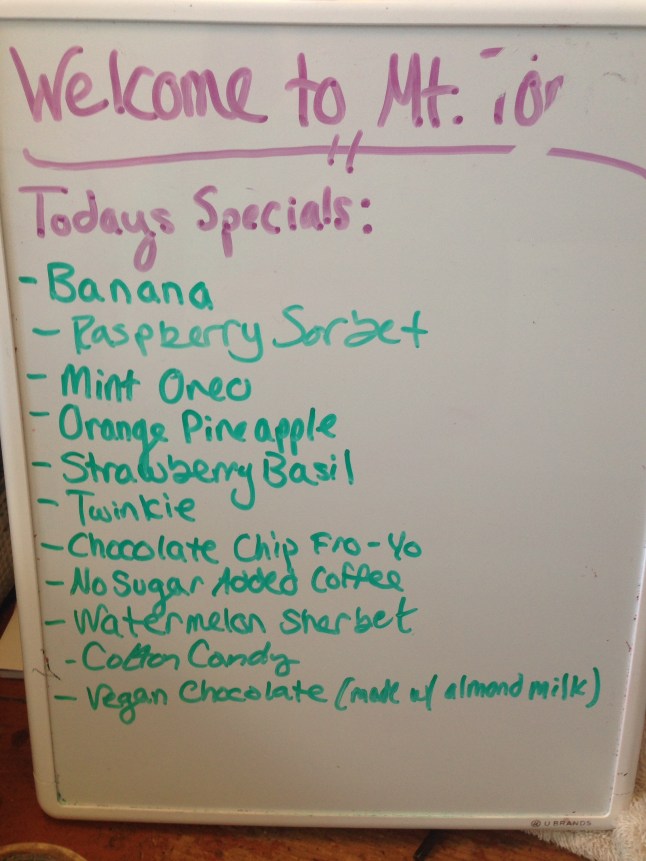 Welcome to Mt.
Todays Specials:
- Banana
- Raspberry Sorbet
- Mint Oreo
- Orange Pineapple
- Strawberry Basil
- Twinkie
- Chocolate Chip Fro-Yo
- No Sugar Added Coffee
- Watermelon Sherbet
- Cotton Candy
- Vegan Chocolate (made w/ almond milk)
U BRANDS